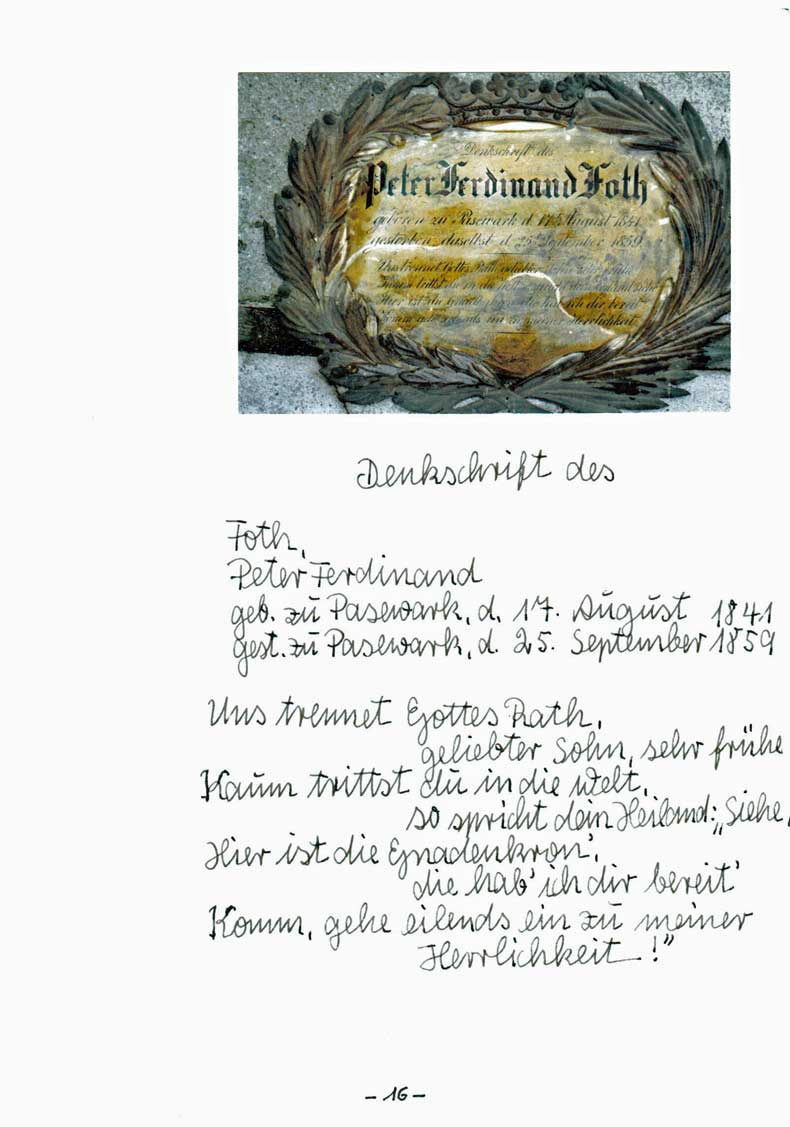 Denkschrift des
Peter Ferdinand Foth
geboren zu Pasewark d. 17. August 1841
gestorben daselbst d. 25. September 1859
Uns trennet Gottes Rath
Kaum trittst du in die
Hier ist die die hab ich dir bereit
Komm ein zu meiner Herrlichkeit
Denkschrift des
Foth,
Peter Ferdinand
geb. zu Pasewark, d. 17. August 1841
gest. zu Pasewark, d. 25. September 1859
Uns trennet Gottes Rath,
geliebter Sohn, sehr frühe
Kaum trittst du in die Welt,
so spricht dein Heiland: „Siehe,
Hier ist die Gnadenkron',
die hab' ich dir bereit'
Komm, gehe eilends ein zu meiner
Herrlichkeit!"
- 16 -